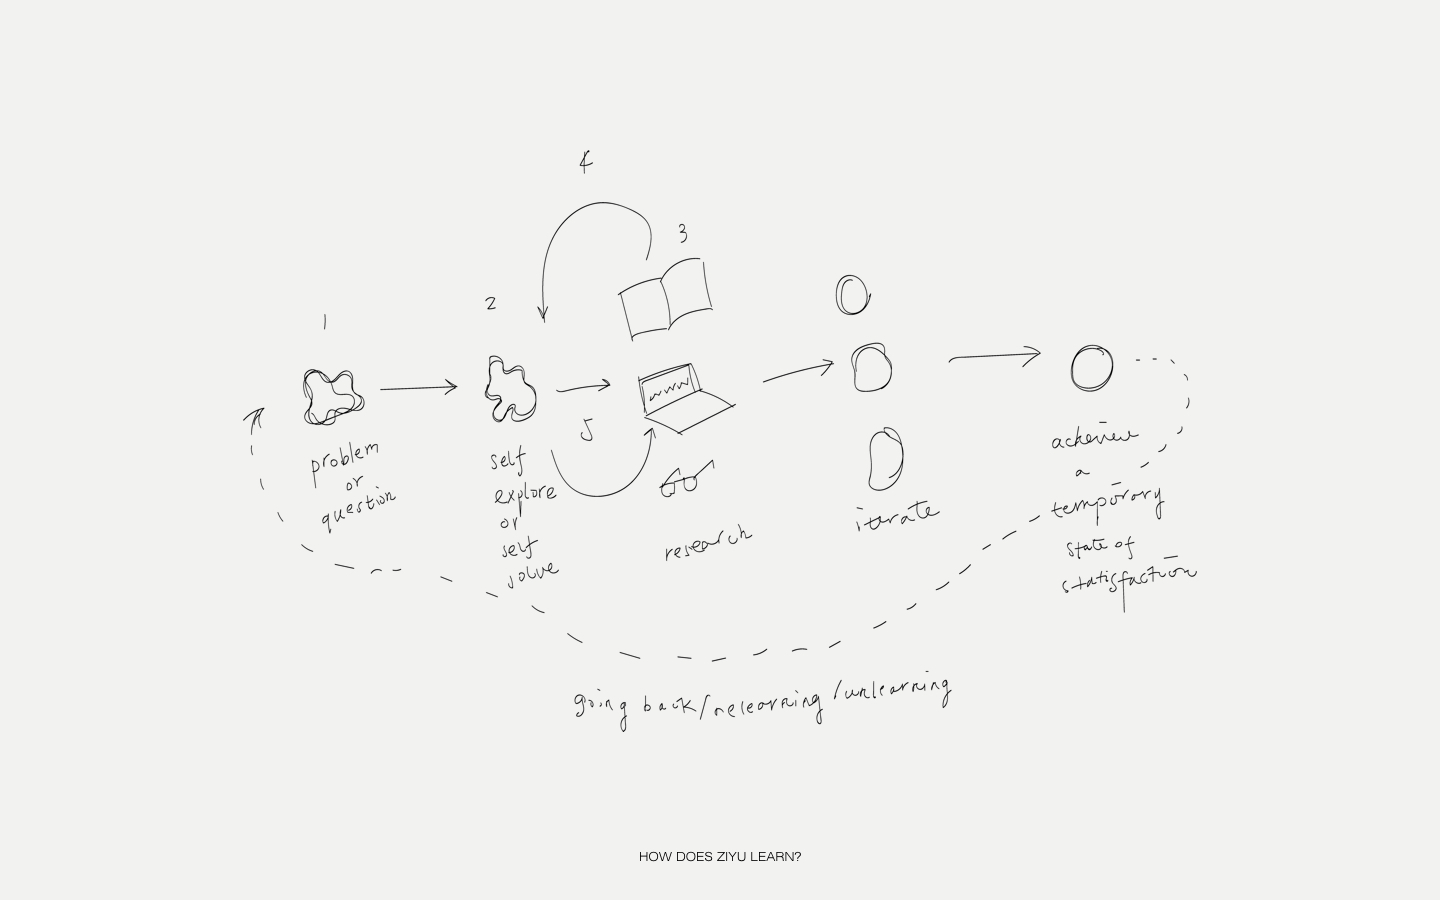 4
3
2
1
5
problem
or
question
self
explore
or
self
solve
research
iterate
acheive
a
temporory
state of
statisfaction
going back/relearning/unlearning
HOW DOES ZIYU LEARN?